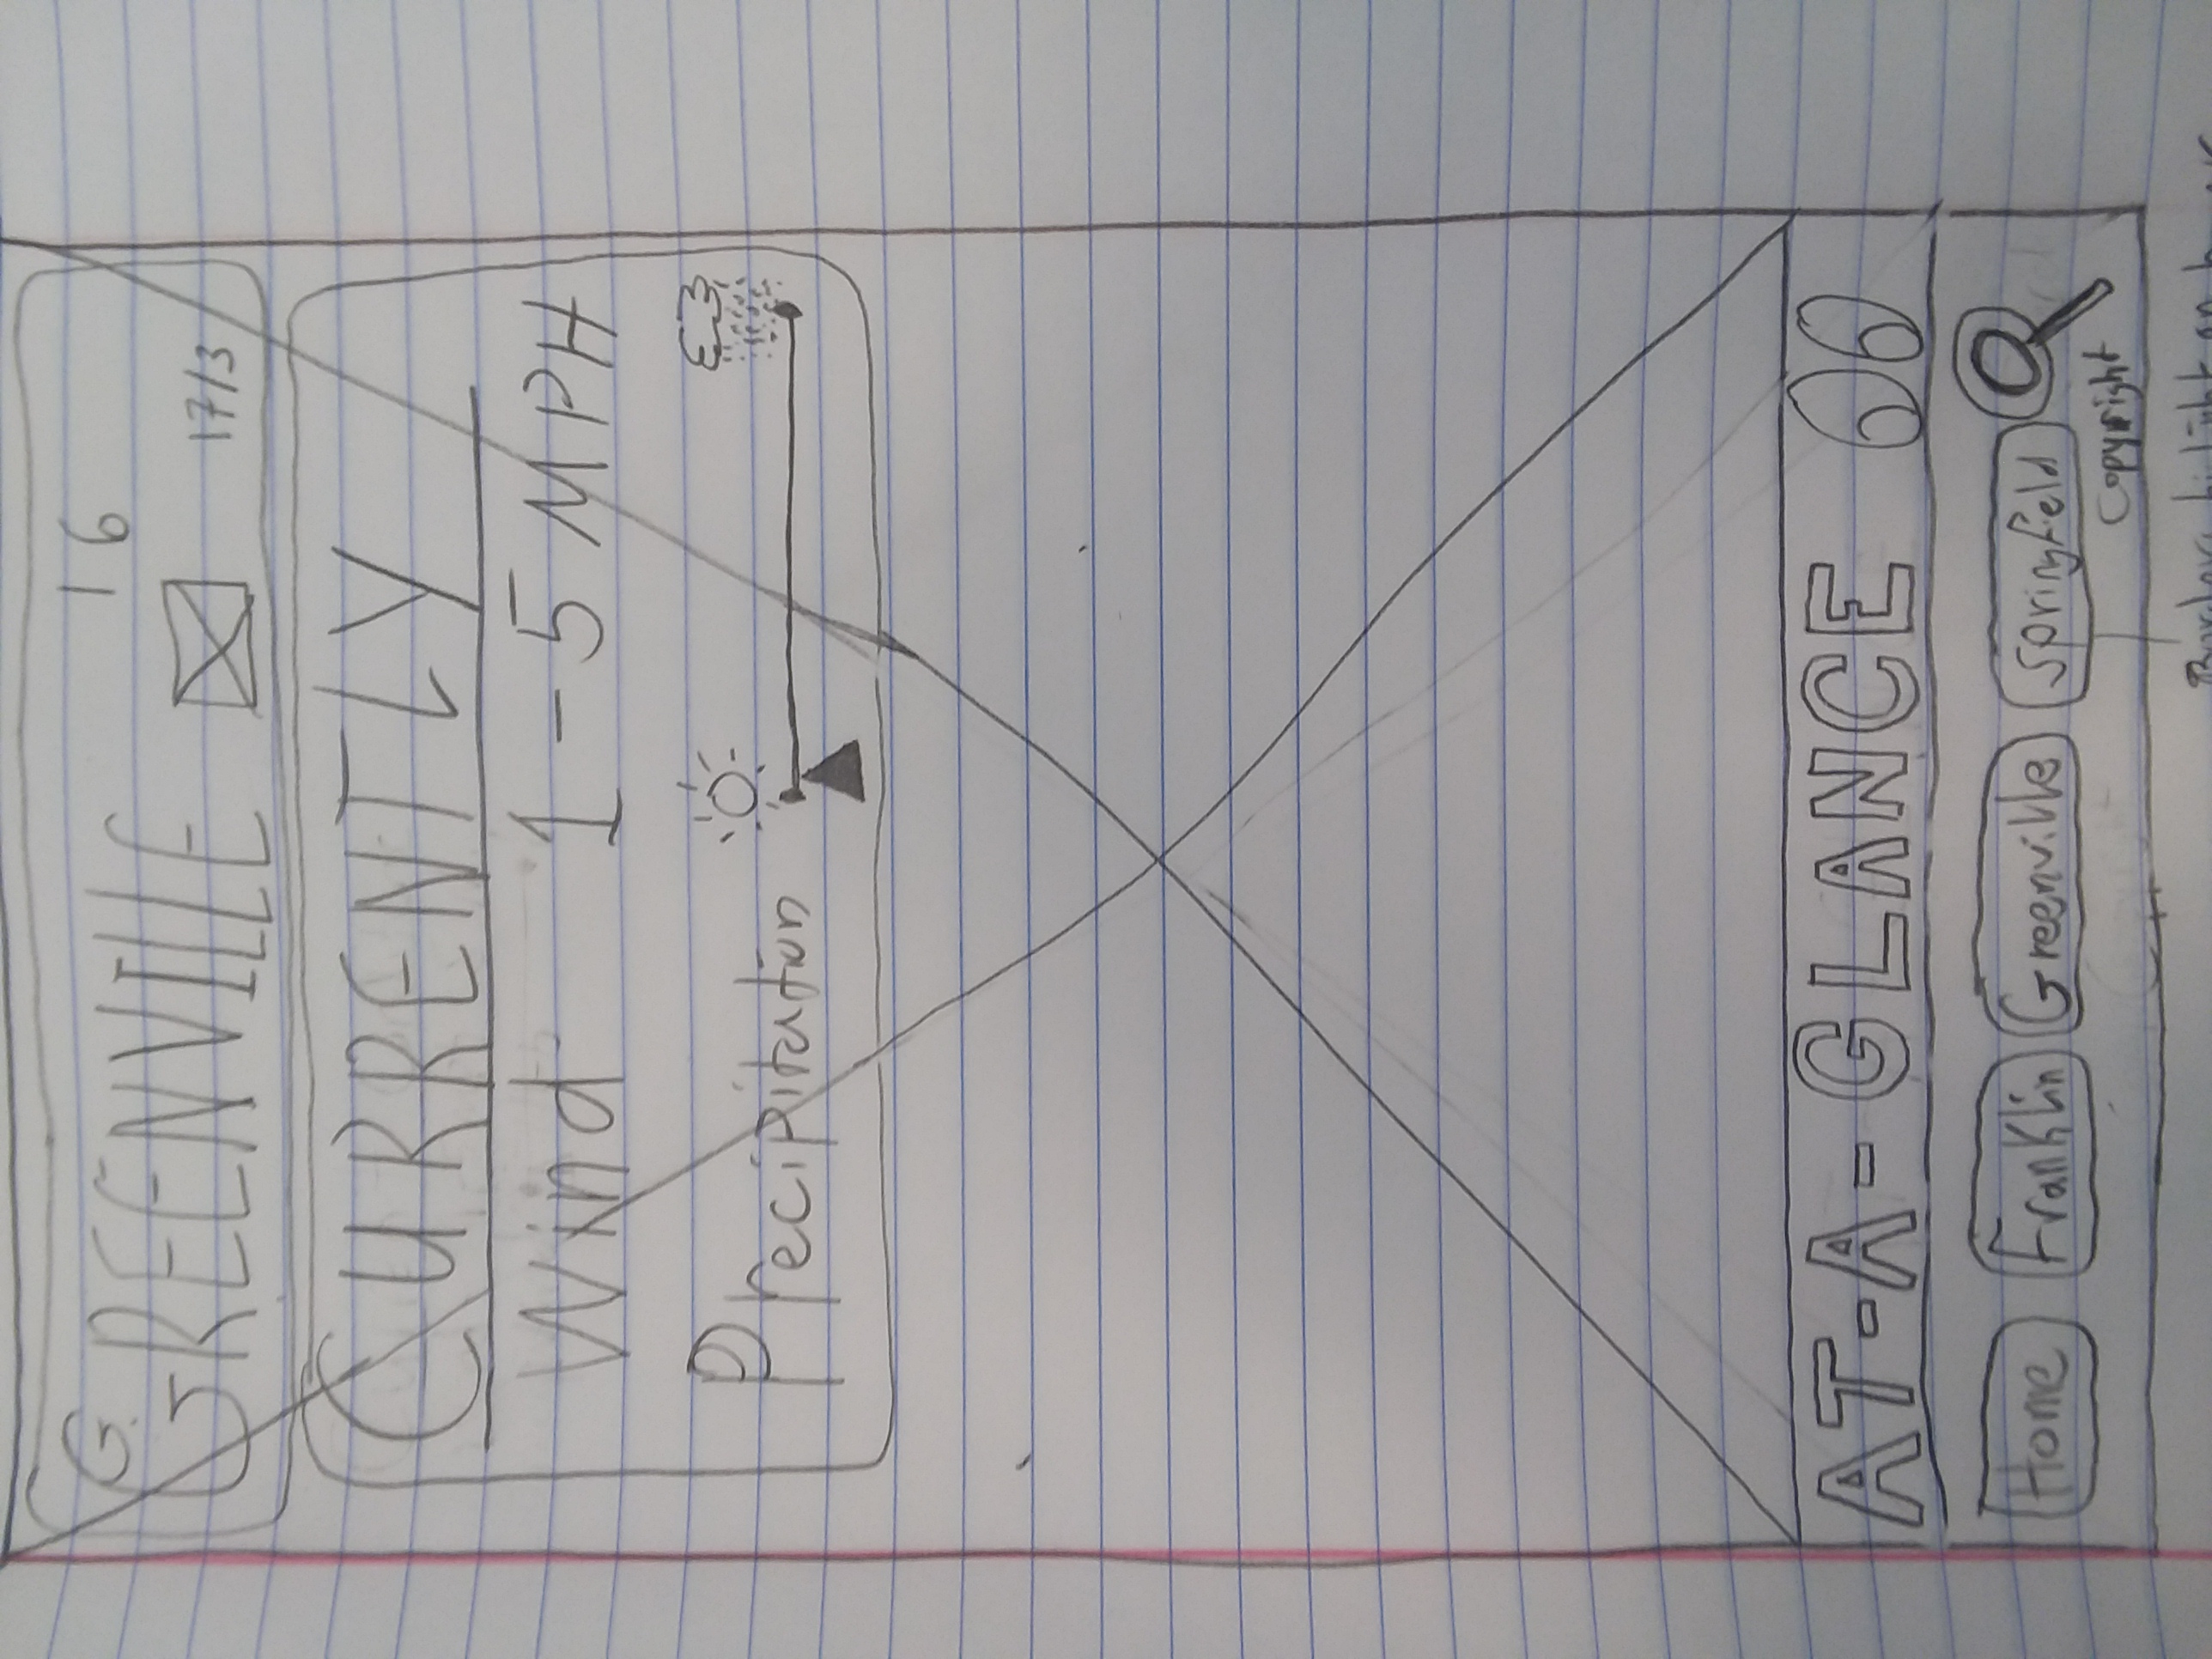 G.
16
GREENVILLE
17/3
CURRENTLY
Wind 1-5 MPH
Precipitation
AT-A-GLANCE
Home Franklin Greenville Springfield
Copyright